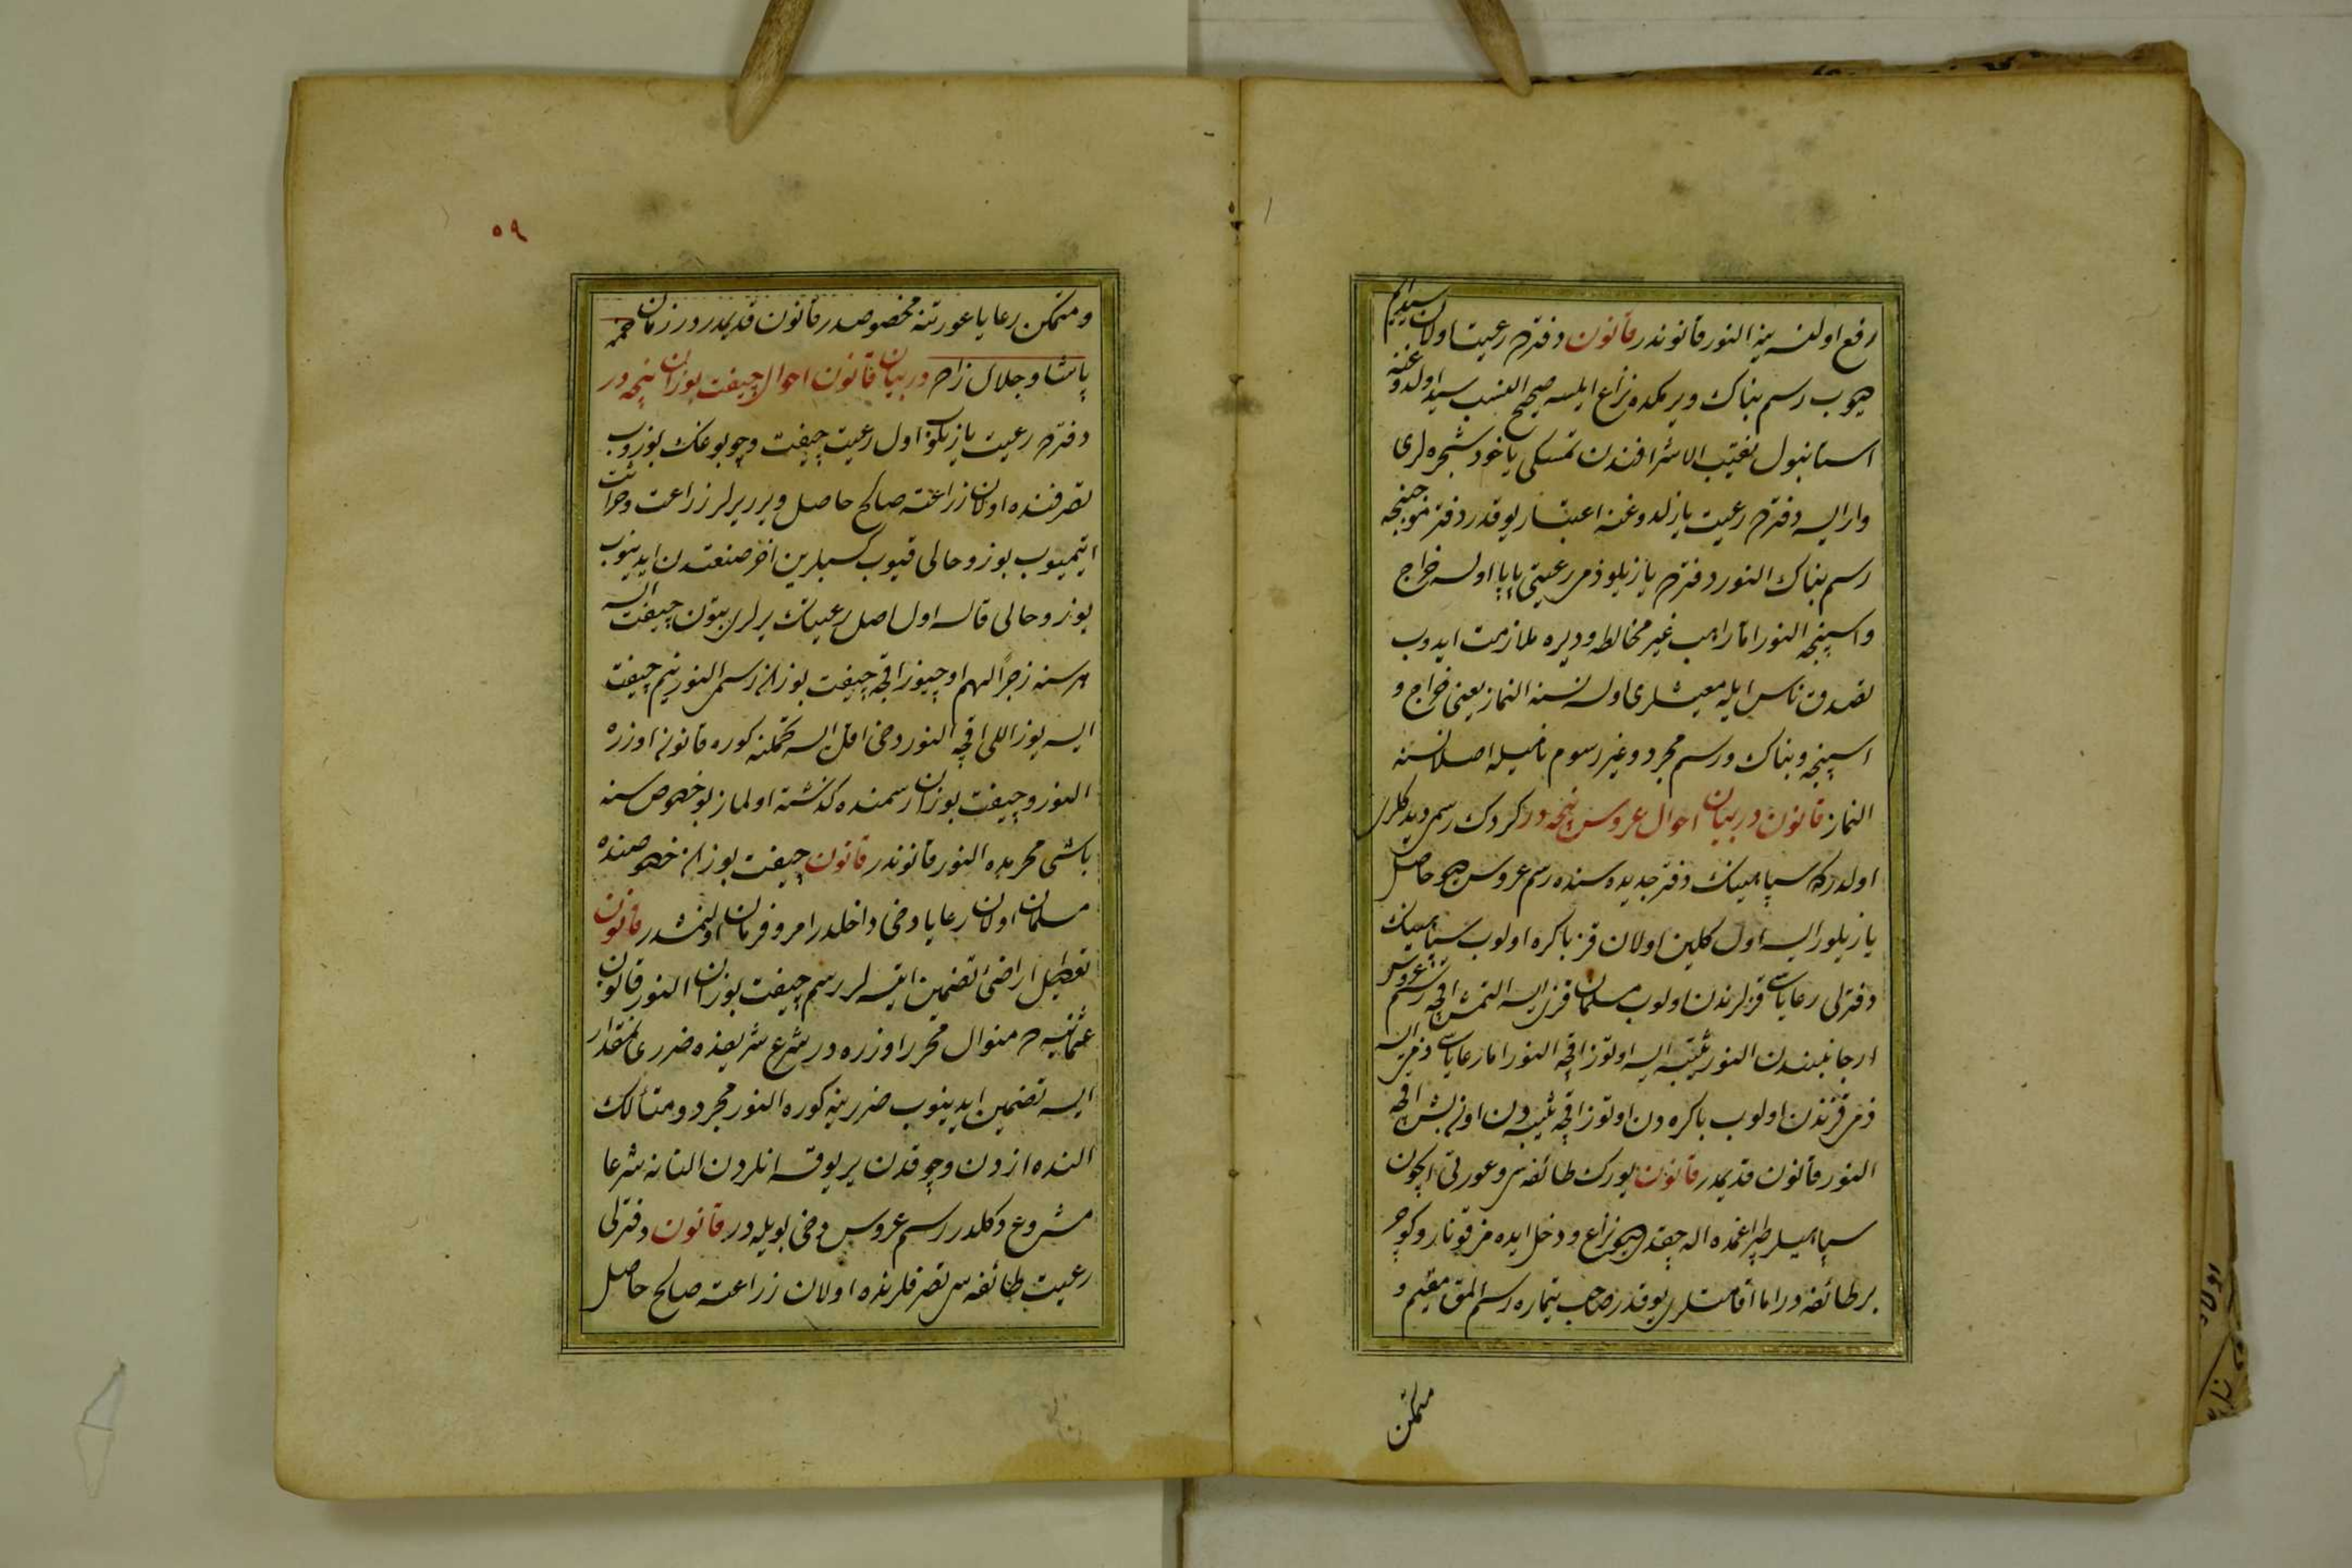 رفع اولنسه ینه النور قانوندر قانون دفترده رعیت اولان سیدایم
دیوب رسم بناک ویرمکده نزاع ایلسه صحیح النسب سید اولدوغنه
استانبول نقیب الاشرافندن تمسکی یاخود شجره لری
وار ایسه دفترده رعیت یازلدوغنه اعتبار یوقدر دفتر موجبنجه
رسم بناک النور دفترده یازیلو ذمی رعیتی پاپا اولسه خراج
واسپنجه النور اما راهب غیر مخالطه ودیره ملازمت ایدوب
تصدق ناس ایله معیشتلری اولسه نسنه النماز یعنی خراج و
اسپنجه وبناک ورسم مجرد وغیر رسوم نامیله اصلا نسنه
النماز قانون دربیان احوال عروس نیجه در کردک رسمی دیدکلری
اولدرکه سپاهینک دفتر جدیدسنده رسم عروس دیو حاصل
یازیلور ایسه اول کلین اولان قز باکره اولوب سپاهینک
دفترلی رعایاسی قزلرندن اولوب مسلمان قزی ایسه التمش اقچه رسم عروس
ار جانبندن النور ثیبه ایسه اوتوز اقچه النور اما رعایاسی ذمی ایسه
ذمی قزندن اولوب باکره دن اوتوز اقچه ثیبه دن اون بش اقچه
النور قانون قدیمدر قانون یورک طائفه سی وعورتی ایچون
سپاهیلر طپراغمده اله چقدی دیو نزاع ودخل ایده مز قونار وکوچر
بر طائفه در اما اقامتلری یوقدر صاحب تیماره رسم المق مقیم و
متمکن
٥٩
ومتمکن رعایا عورتنه مخصوصدر قانون قدیمدر در زمان حمزه
پاشا وجلال زاده دربیان قانون احوال چیفت بوزان نیجه در
دفترده رعیت یازیلو اول رعیت چیفت وچوبوغنک بوزوب
تصرفنده اولان زراعته صالح حاصل ویرر یرلر زراعت وحراثت
ایتمیوب بوز وخالی قیوب کسبلرین اخر صنعتدن ایدینوب
بوز وخالی قالسه اول اصل رعیتک یرلری بتون چیفت ایسه
هر سنه زجرا لهم اوچیوز اقچه چیفت بوزان رسمی النور نیم چیفت
ایسه یوز اللی اقچه النور دخی اقل ایسه تحملنه کوره قانون اوزره
النور وچیفت بوزان رسمنده کذشته اولماز بو خصوص سنه
باشی محرمده النور قانوندر قانون چیفت بوزان خصوصنده
مسلمان اولان رعایا دخی داخلدر امر وفرمان اولنمشدر قانون
تعطیل اراضی تضمین ایتسه لر رسم چیفت بوزان النور قانون
عثمانیده منوال محرر اوزره در شرع شریفده ضرر نه مقدار
ایسه تضمین ایدینوب ضررینه کوره النور مجرد ومتأهلک
النده ازدن وچوقدن یر یوقسه انلردن النانه شرعا
مشروع دکلدر رسم عروس دخی بویله در قانون دفترلی
رعیت طائفه سی تصرفلرنده اولان زراعته صالح حاصل